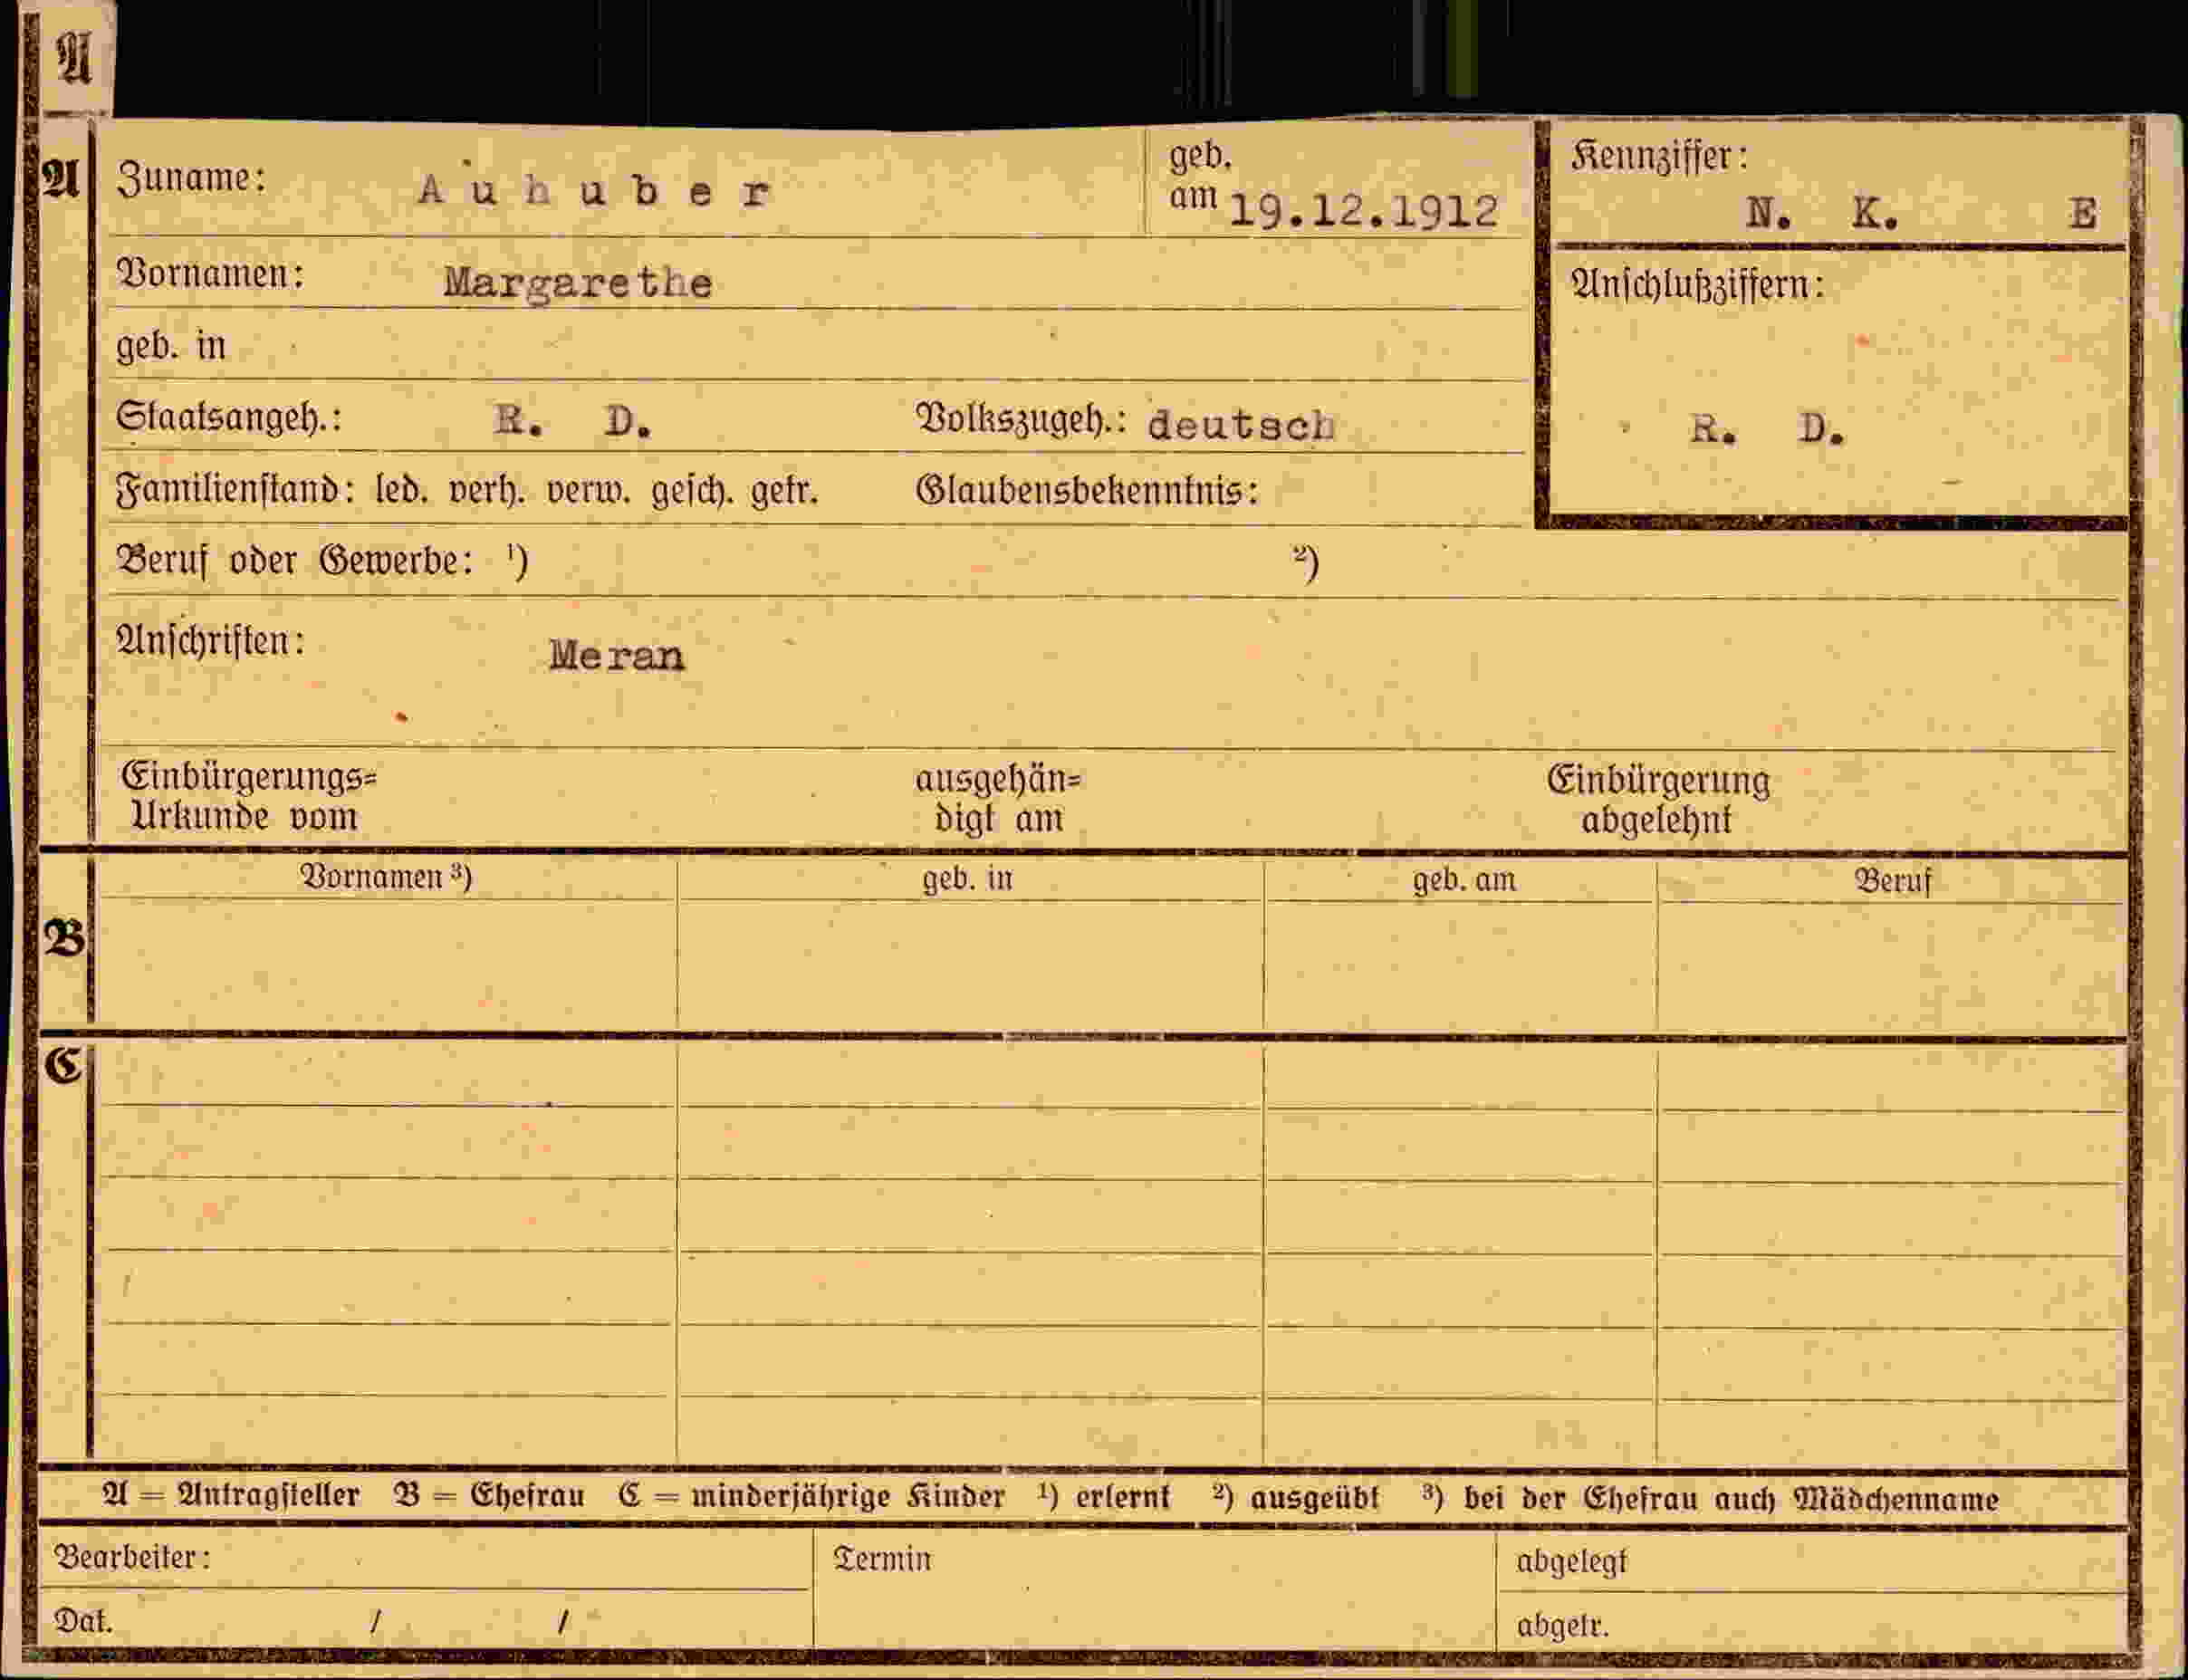 A
A Zuname: Auhuber geb. am 19.12.1912 Kennziffer: N. K. E
Vornamen: Margarethe Anschlußziffern:
geb. in
Staatsangeh.: R. D. Volkszugeh.: deutsch R. D.
Familienstand: led. verh. verw. gesch. getr. Glaubensbekenntnis:
Beruf oder Gewerbe: ¹) ²)
Anschriften: Meran
Einbürgerungs= ausgehän= Einbürgerung
Urkunde vom digt am abgelehnt
Vornamen ³) geb. in geb. am Beruf
B
C
A = Antragsteller B = Ehefrau C = minderjährige Kinder ¹) erlernt ²) ausgeübt ³) bei der Ehefrau auch Mädchenname
Bearbeiter: Termin abgelegt
Dat. / / abgetr.